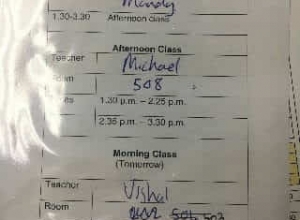 Mandy
1.30-3.30 Afternoon class
Afternoon Class
Teacher Michael
508
1.30 p.m. – 2.25 p.m.
2.35 p.m. – 3.30 p.m.
Morning Class
(Tomorrow)
Teacher Vishal
Room 503